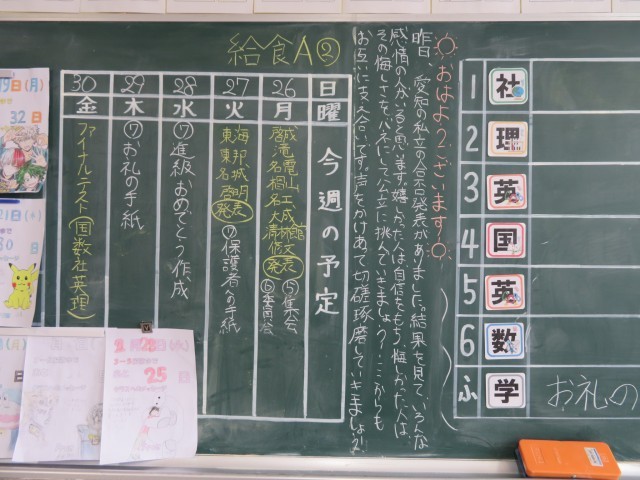 給食A②
日 曜 今週の予定
26 月 啓成
滝 電山
名 桜工
名大成
清林館
修文
発表
⑤集会
⑥委員会
27 火 東海
東邦
名城
啓明
発表
⑦保護者への手紙
28 水 ⑦進級おめでとう作成
29 木 ⑦お礼の手紙
30 金 ファイナルテスト(国数社英理)
おはようございます!
昨日、愛知の私立の合否発表がありました。結果を見て、いろんな
感情の人がいると思います。嬉しかった人は自信をもち、悔しかった人は、
その悔しさをバネにして公立に挑んでいきましょう?ここからも
お互いに支え合いです。声をかけあって切磋琢磨していきましょう?
1 社
2 理
3 英
4 国
5 英
6 数
ふ 学 お礼の
19日(月)
32日
21日(水)
30日
2月28日(水)
25日